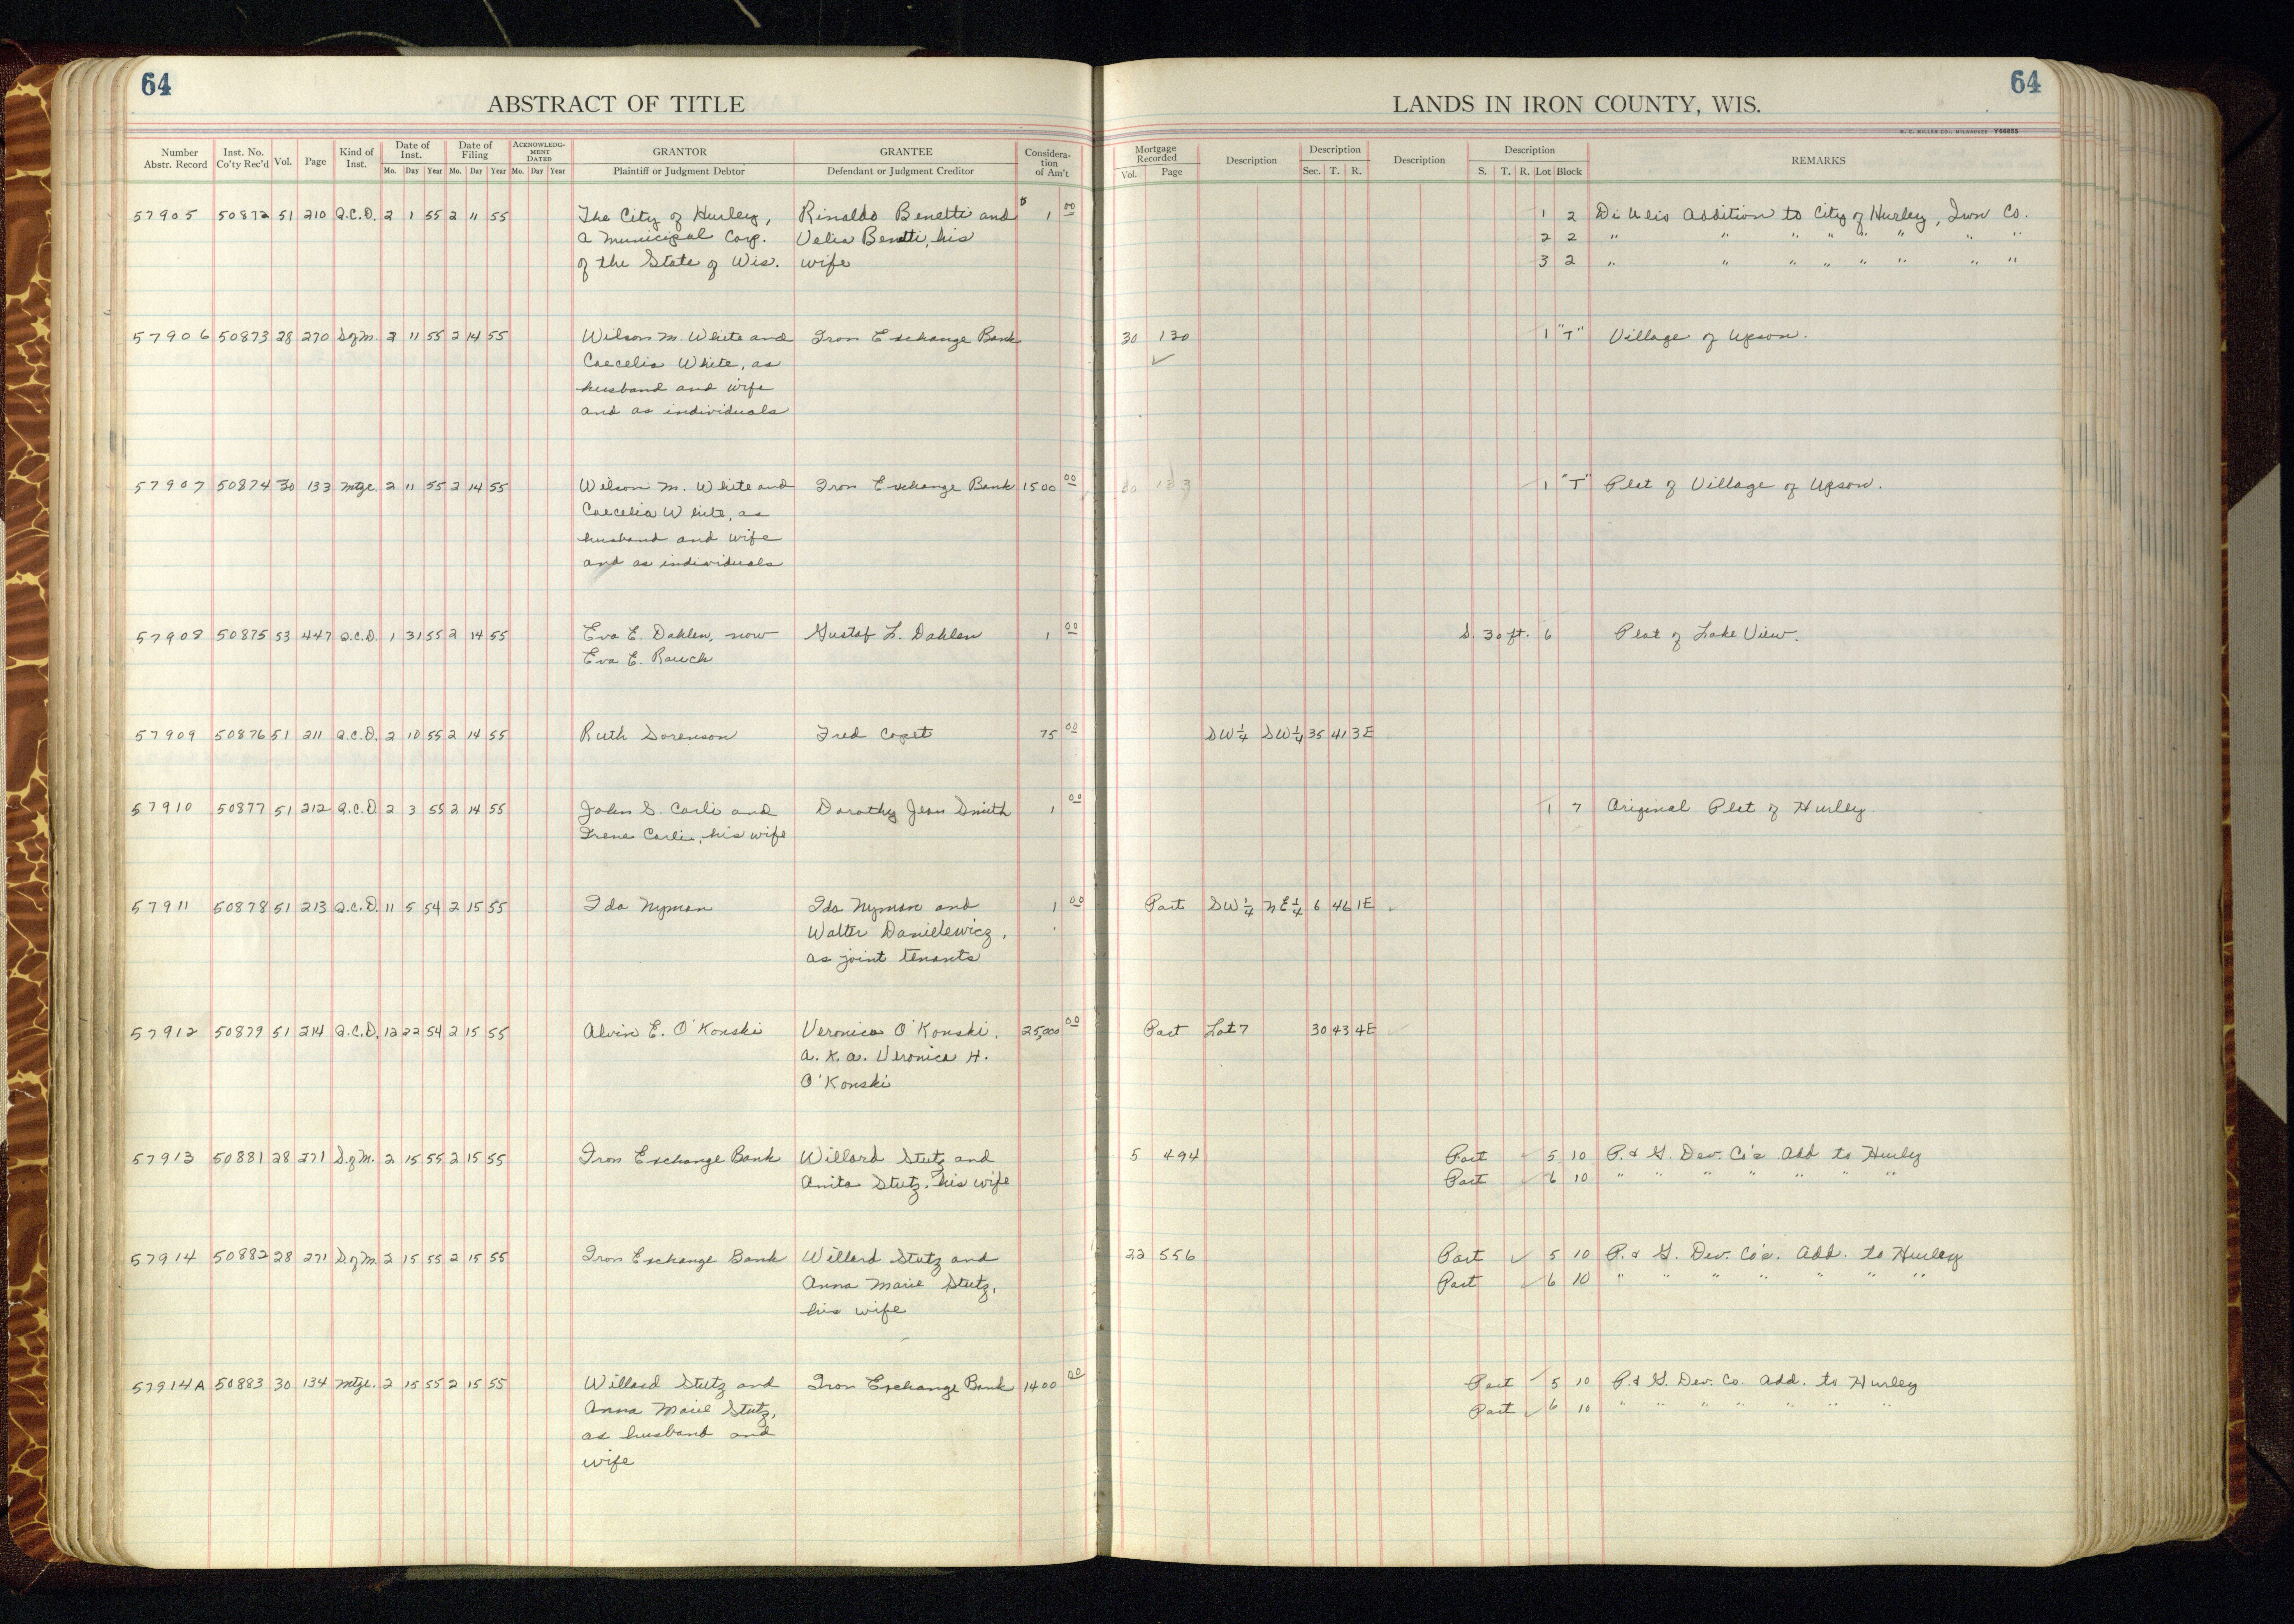 64
ABSTRACT OF TITLE
Number Abstr. Record Inst. No. Co'ty Rec'd Vol. Page Kind of Inst. Date of Inst. Mo. Day Year Date of Filing Mo. Day Year ACKNOWLEDGMENT DATED Mo. Day Year GRANTOR Plaintiff or Judgment Debtor GRANTEE Defendant or Judgment Creditor Consideration of Am't
57905 50872 51 210 Q.C.D. 2 1 55 2 11 55 The City of Hurley, Rinaldo Benetti and $ 1 00
a municipal Corp. Velia Benetti, his
of the State of Wis. wife
57906 50873 28 270 S of M. 2 11 55 2 14 55 Wilson M. White and Iron Exchange Bank
Caecelia White, as
husband and wife
and as individuals
57907 50874 30 133 Mtge. 2 11 55 2 14 55 Wilson M. White and Iron Exchange Bank 1500 00
Caecelia White, as
husband and wife
and as individuals
57908 50875 53 447 Q.C.D. 1 31 55 2 14 55 Eva E. Dahlen, now Gustaf L. Dahlen 1 00
Eva E. Rauch
57909 50876 51 211 Q.C.D. 2 10 55 2 14 55 Ruth Sorenson Fred Copet 75 00
57910 50877 51 212 Q.C.D 2 3 55 2 14 55 John S. Carli and Dorothy Jean Smith 1 00
Irene Carli, his wife
57911 50878 51 213 Q.C.D. 11 5 54 2 15 55 Ida Nyman Ida Nyman and 1 00
Walter Danielewicz,
as joint tenants
57912 50879 51 214 Q.C.D. 12 22 54 2 15 55 Alvin E. O'Konski Veronica O'Konski, 25,000 00
a. k. a. Veronica H.
O'Konski
57913 50881 28 271 S. of M. 2 15 55 2 15 55 Iron Exchange Bank Willard Stutz and
Anita Stutz, his wife
57914 50882 28 271 S. of M. 2 15 55 2 15 55 Iron Exchange Bank Willard Stutz and
Anna Marie Stutz,
his wife
57914A 50883 30 134 Mtge. 2 15 55 2 15 55 Willard Stutz and Iron Exchange Bank 1400 00
Anna Marie Stutz,
as husband and
wife
64
LANDS IN IRON COUNTY, WIS.
H. C. MILLER CO., MILWAUKEE Y06655
Mortgage Recorded Vol. Page Description Description Sec. T. R. Description Description S. T. R. Lot Block REMARKS
1 2 Di Ulio Addition to City of Hurley, Iron Co.
2 2 " " " " " " " "
3 2 " " " " " " " "
30 130 1 "T" Village of Upson.
30 133 1 "T" Plat of Village of Upson.
S. 30 ft. 6 Plat of Lake View.
SW 1/4 SW 1/4 35 41 3E
1 7 Original Plat of Hurley.
Part SW 1/4 NE 1/4 6 46 1E
Part Lot 7 30 43 4E
5 494 Part 5 10 P. & G. Dev. Co's Add to Hurley
Part 6 10 " " " " " " "
22 556 Part 5 10 P. & G. Dev. Co's. Add. to Hurley
Part 6 10 " " " " " " "
Part 5 10 P. & G. Dev. Co. Add. to Hurley
Part 6 10 " " " " " " "